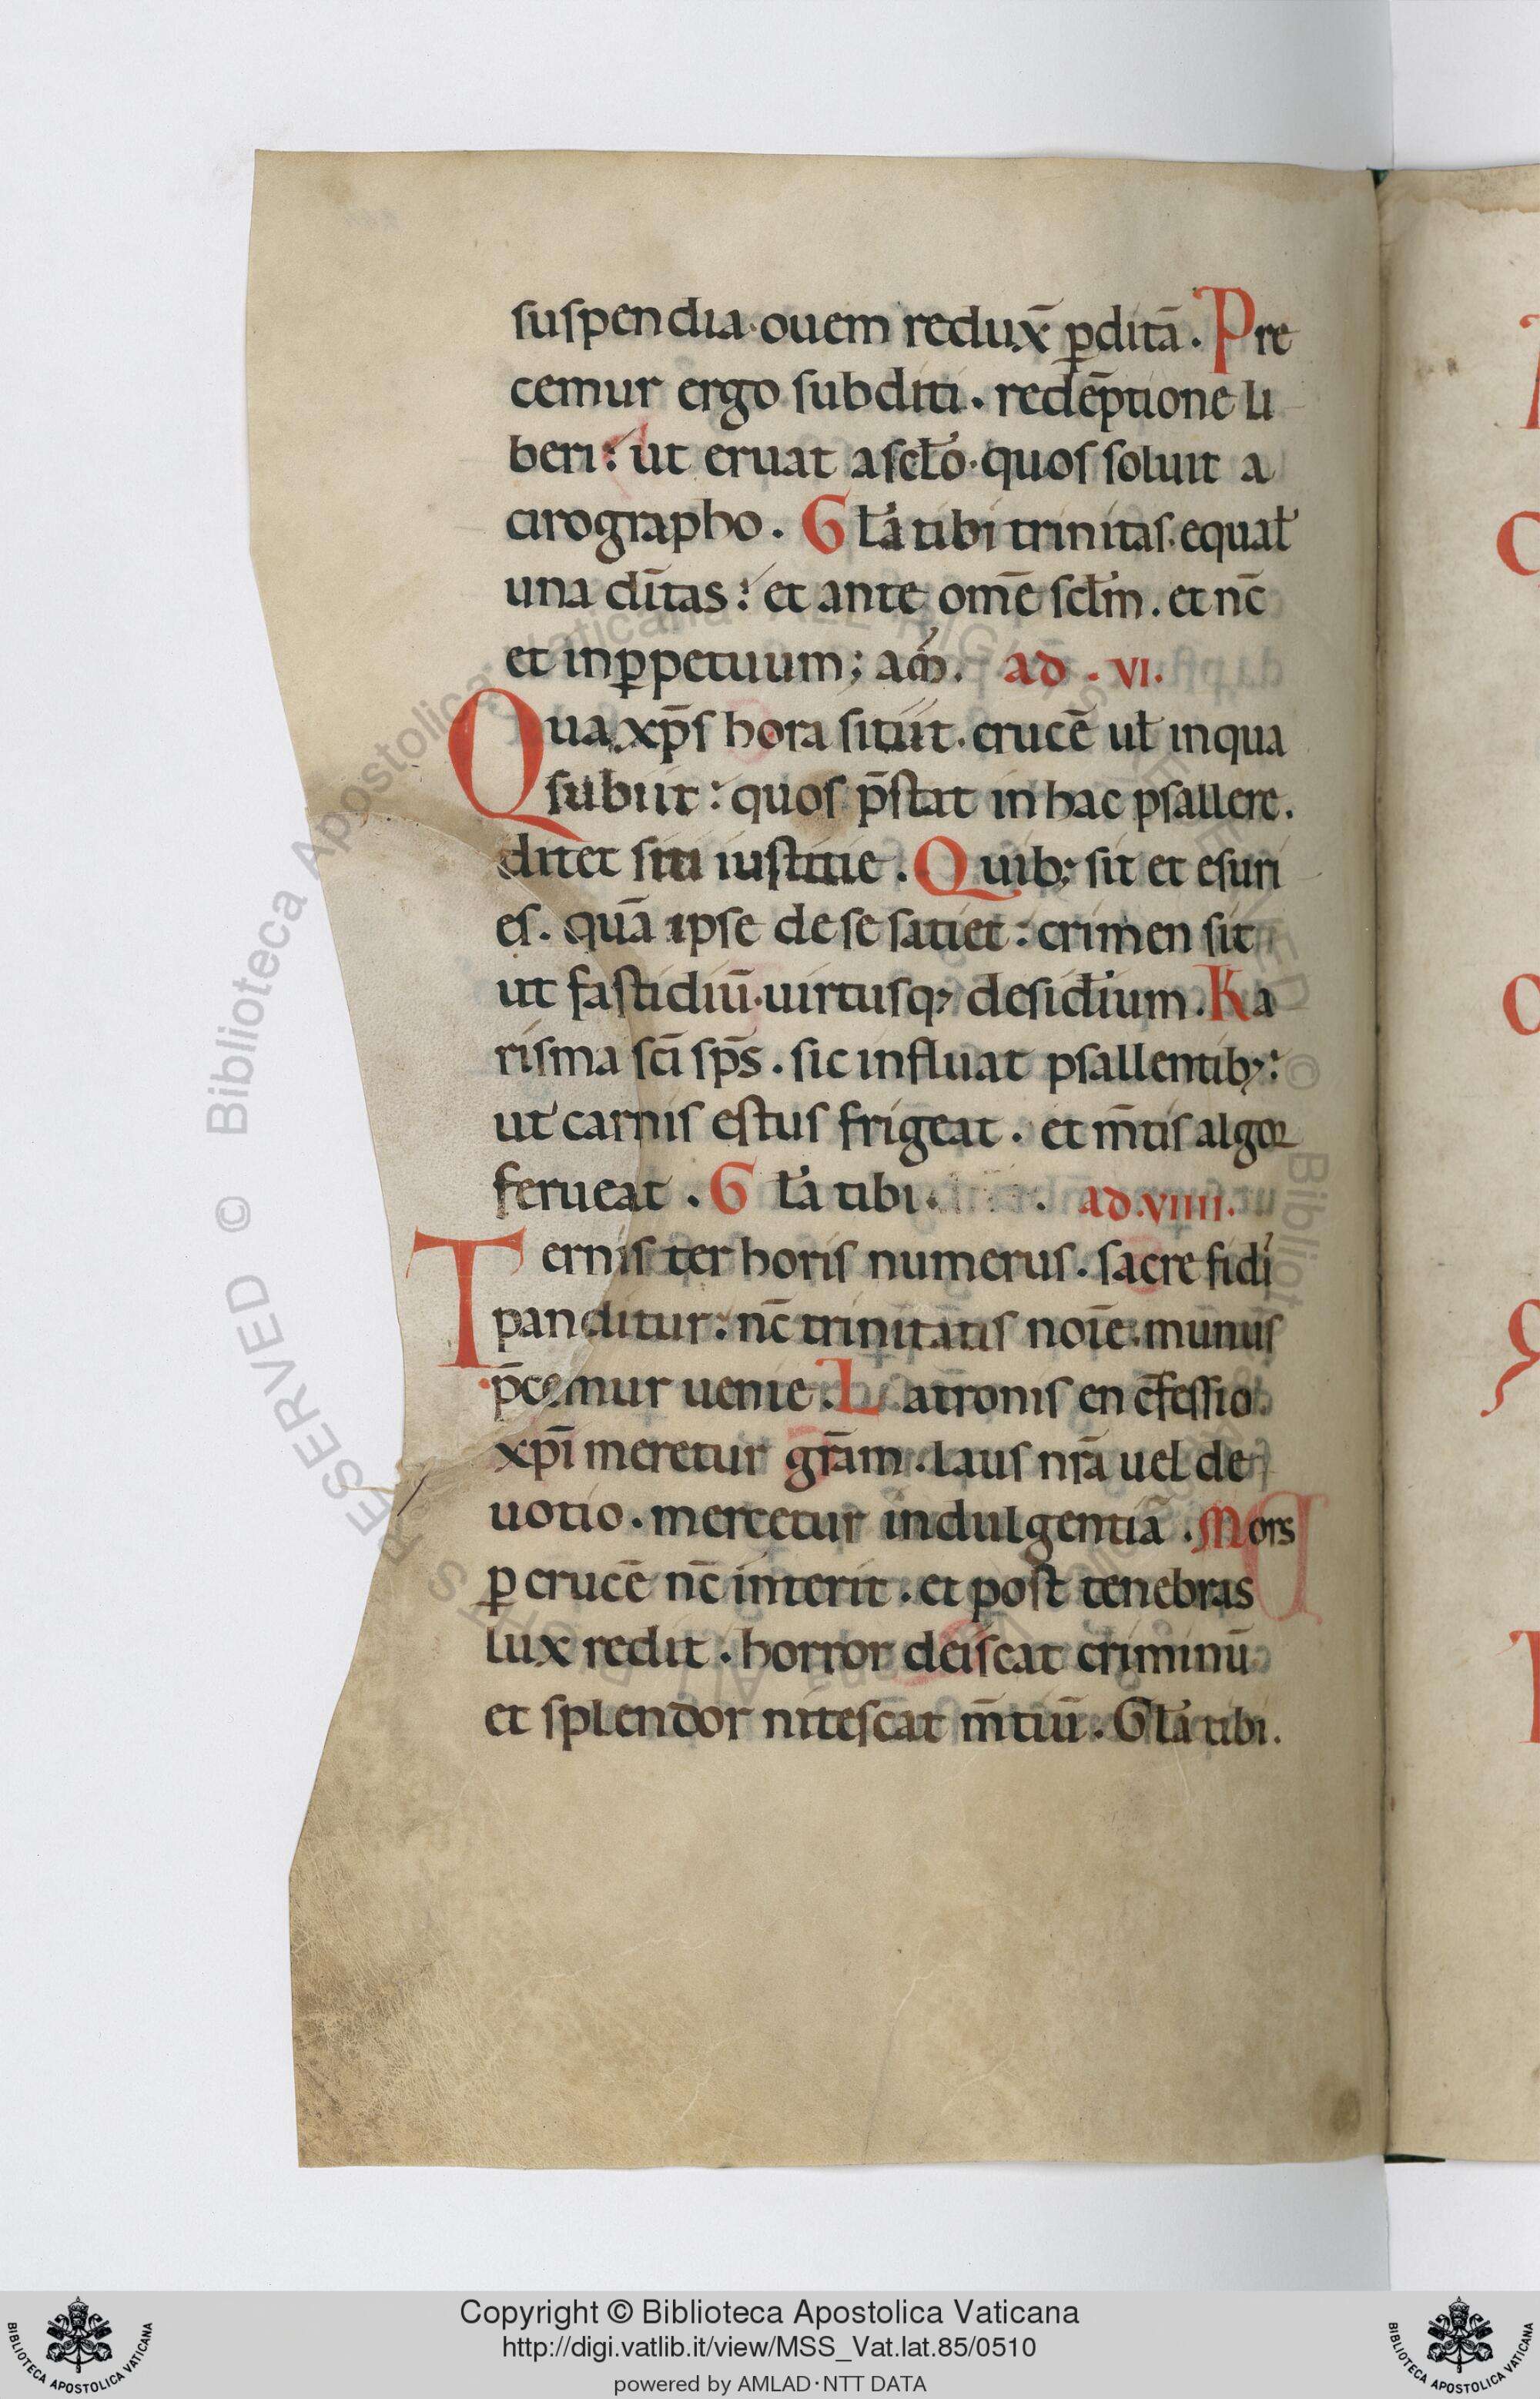 suspendia. ouem redux̄ ꝑditā. Pre
cemur ergo subditi. redēptione li
beri: ut eruat a scło. quos soluit a
cirographo. Gła tibi trinitas. equał
una dītas: et ante omē scłm. et nc̄
et inꝑpetuum; am̄. ad. VI.
Qua xp̄s hora sitiit. crucē uł in qua
subiit: quos p̄stat in hac psallere.
ditet siti iustitie. Quib; sit et esuri
es. quā ipse de se satiet: crimen sit
ut fastidiū. uirtusq; desiđium. Ka
risma sc̄i sp̄s. sic influat psallentib;:
ut carnis estus frigeat. et m̄tis algor
ferueat. Gła tibi. ad. VIIII.
Ternis ter horis numerus. sacre fidi
panditur: nc̄ trinitatis noīe. munus
p̄cemur uenie. Latronis en c̄fessio.
xp̄i meretur grām. laus nrā uel de
uotio. mereetur indulgentiā. Mors
ꝑ crucē nc̄ interit. et post tenebras
lux redit. horror deiscat criminū
et splendor nitescat m̄tiū. Gła tibi.
Copyright © Biblioteca Apostolica Vaticana
http://digi.vatlib.it/view/MSS_Vat.lat.85/0510
powered by AMLAD·NTT DATA
BIBLIOTECA APOSTOLICA VATICANA
BIBLIOTECA APOSTOLICA VATICANA